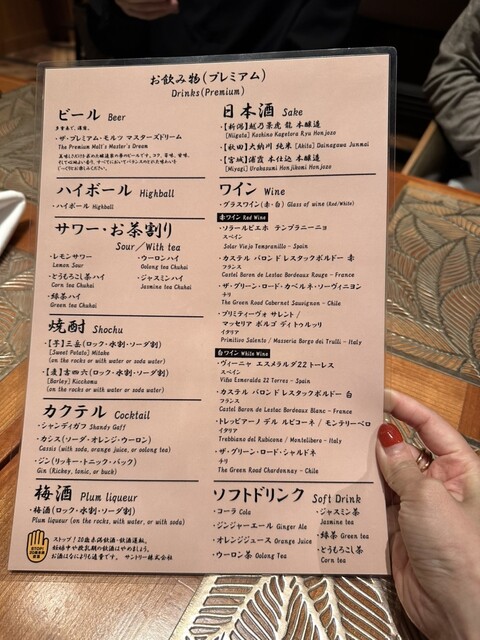 お飲み物(プレミアム)
Drinks(Premium)
ビール Beer
・ザ・プレミアム・モルツ マスターズドリーム
The Premium Malt's Master's Dream
ハイボール Highball
・ハイボール Highball
サワー・お茶割り
Sour/With tea
・レモンサワー
Lemon Sour
・とうもろこし茶ハイ
Corn tea Chuhai
・緑茶ハイ
Green tea Chuhai
・ウーロンハイ
Oolong tea Chuhai
・ジャスミンハイ
Jasmine tea Chuhai
焼酎 Shochu
・【芋】三岳(ロック・水割・ソーダ割)
[Sweet Potato] Mitake
(on the rocks or with water or soda water)
・【麦】吉四六(ロック・水割・ソーダ割)
[Barley] Kicchomu
(on the rocks or with water or soda water)
カクテル Cocktail
・シャンディガフ Shandy Gaff
・カシス(ソーダ・オレンジ・ウーロン)
Cassis (with soda, orange juice, or oolong tea)
・ジン(リッキー・トニック・バック)
Gin (Rickey, tonic, or buck)
梅酒 Plum liqueur
・梅酒(ロック・水割・ソーダ割)
Plum liqueur (on the rocks, with water, or with soda)
STOP!
ストップ!20歳未満飲酒・飲酒運転。
妊娠中や授乳期の飲酒はやめましょう。
お酒はなによりも適量です。 サントリー株式会社
日本酒 Sake
・【新潟】越乃景虎 龍 本醸造
[Niigata] Koshino Kagetora Ryu Honjozo
・【秋田】大納川 純米 [Akita] Dainagawa Junmai
・【宮城】浦霞 本仕込 本醸造
[Miyagi] Urakasumi Honjikomi Honjozo
ワイン Wine
・グラスワイン(赤・白) Glass of wine (Red/White)
赤ワイン Red Wine
・ソラールビエホ テンプラニーニョ
スペイン
Solar Viejo Tempranillo - Spain
・カステル バロンド レスタックボルドー 赤
フランス
Castel Baron de Lestac Bordeaux Rouge - France
・ザ・グリーン・ロード・カベルネ・ソーヴィニヨン
チリ
The Green Road Cabernet Sauvignon - Chile
・プリミティーヴォ サレント/
マッセリア ボルゴ ディ トゥルッリ
イタリア
Primitivo Salento / Masseria Borgo dei Trulli - Italy
白ワイン White Wine
・ヴィーニャ エスメラルダ22 トーレス
スペイン
Viña Esmeralda 22 Torres - Spain
・カステル バロンド レスタックボルドー 白
フランス
Castel Baron de Lestac Bordeaux Blanc - France
・トレッビアーノ デル ルビコーネ / モンテリーベロ
イタリア
Trebbiano del Rubicone / Montelibero - Italy
・ザ・グリーン・ロード・シャルドネ
チリ
The Green Road Chardonnay - Chile
ソフトドリンク Soft Drink
・コーラ Cola
・ジンジャーエール Ginger Ale
・オレンジジュース Orange Juice
・ウーロン茶 Oolong Tea
・ジャスミン茶
Jasmine tea
・緑茶 Green tea
・とうもろこし茶
Corn tea